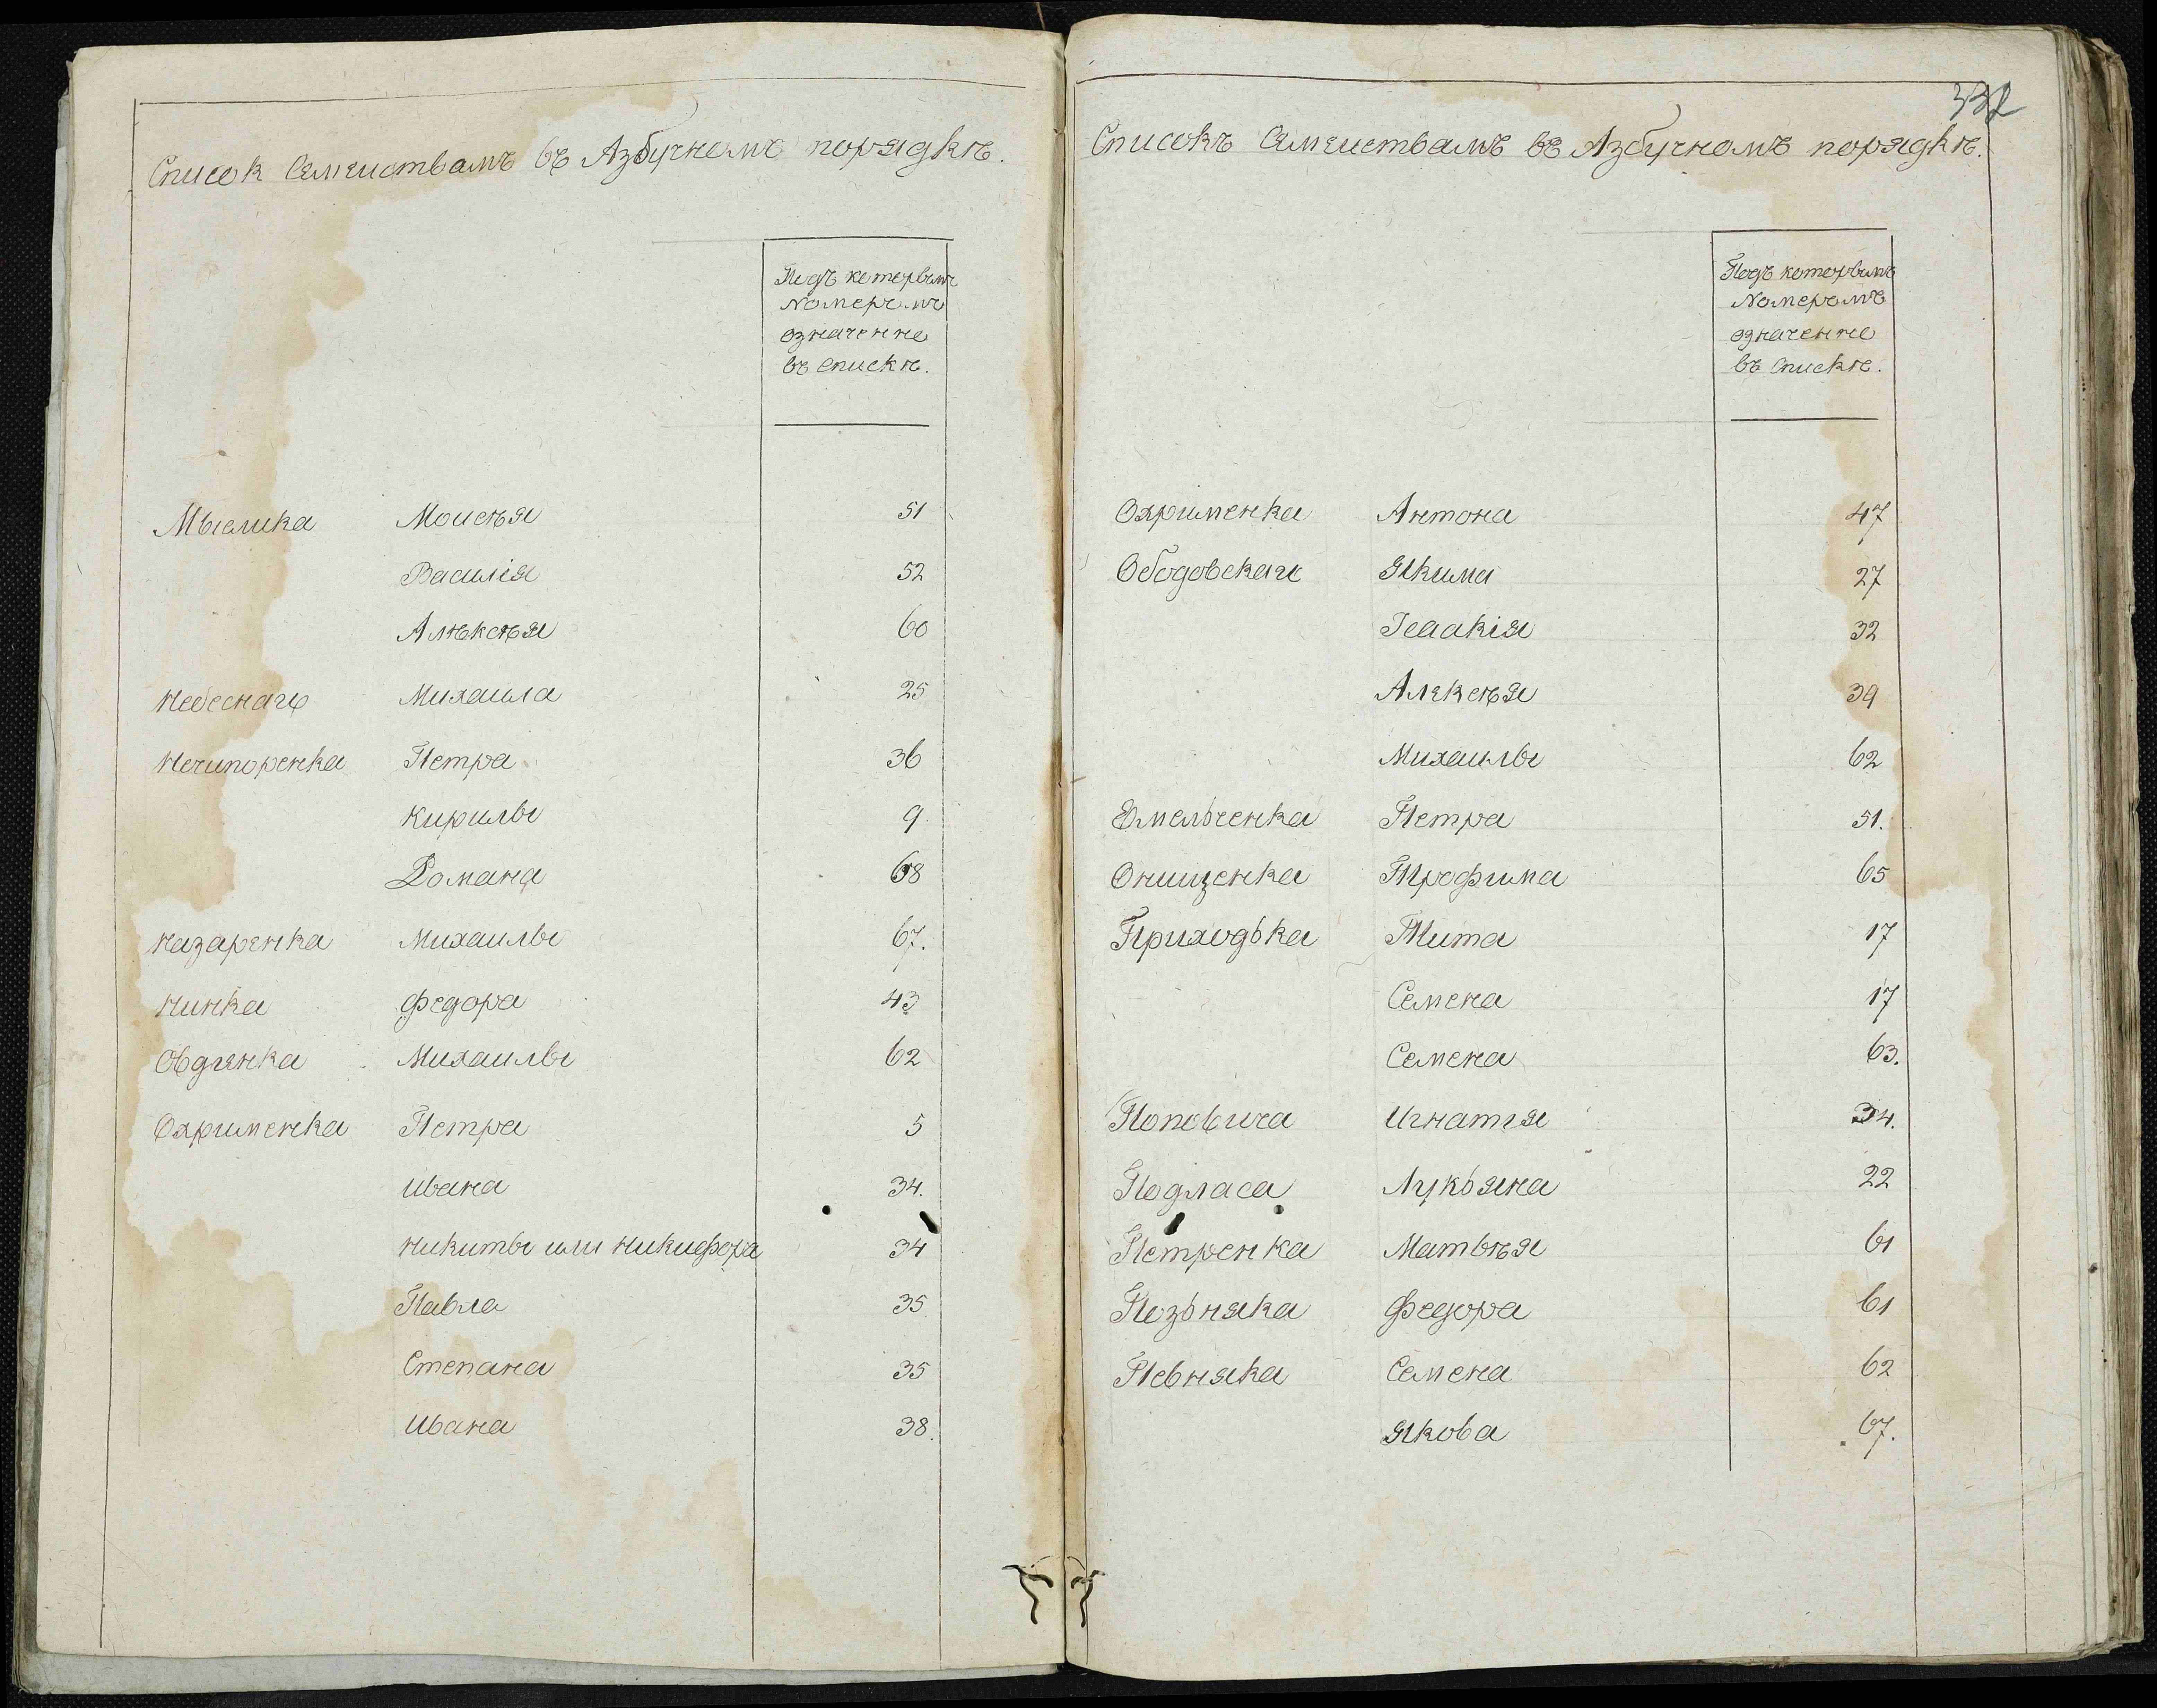 Список Семеиствамъ въ Азбучномъ порядкѣ.
Подъ которымъ
Nомеромъ
означенно
въ Спискѣ.
Мыслика Моисѣя 51
Василія 52
Алѣксѣя 60
Небеснаго Михаила 25
Нечипоренка Петра 36
Кирилы 9
Романа 68
Назаренка Михаилы 67.
Нинка Федора 43
Овдѣенка Михаилы 62
Охрименка Петра 5
Ивана 34.
Никиты или Никифора 34
Павла 35
Степана 35
Ивана 38.
332
Списокъ Семеиствамъ въ Азбучномъ порядкѣ.
Подъ которымъ
Nомеромъ
означенно
въ Спискѣ.
Охрименка Антона 47
Ободовскаго Якима 27
Ісаакія 32
Алексѣя 39
Михаилы 62
Омельченка Петра 51.
Онищенка Трофима 65
Приходька Тита 17
Семена 17
Семена 63.
Поповича Игнатія 34.
Подласа Лукьяна 22
Петренка Матвѣя 61
Позьняка Федора 61
Певняка Семена 62
Якова 67.